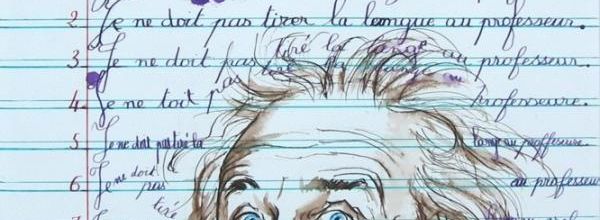 2. Je ne doit pas tirer la langue au professeur.
3. Je ne doit pas tiré la lange au professeur.
4. Je ne toit pas tiré la langue au professeure.
5. Je ne doit pas tiré la lange au proffesseure.
6. Je ne doit pas tiré au professeur
7.